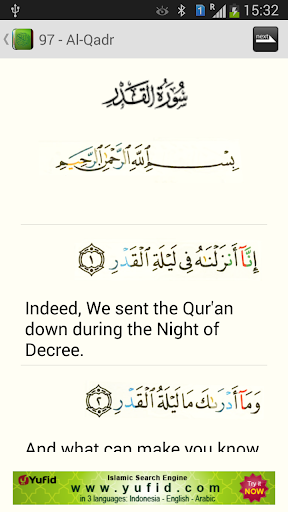 15:32
97 - Al-Qadr
next
سُورَةُ القَدْرِ
بِسْمِ اللَّهِ الرَّحْمَٰنِ الرَّحِيمِ
إِنَّآ أَنزَلْنَٰهُ فِى لَيْلَةِ ٱلْقَدْرِ ١
Indeed, We sent the Qur'an
down during the Night of
Decree.
وَمَآ أَدْرَىٰكَ مَا لَيْلَةُ ٱلْقَدْرِ ٢
And what can make you know
YuFid
Islamic Search Engine
www.yufid.com
in 3 languages: Indonesia - English - Arabic
Try it
NOW